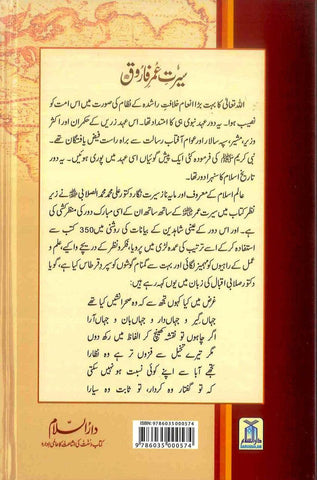 سیرتِ عمر فاروقؓ
اللہ تعالیٰ کا بہت بڑا انعام خلافتِ راشدہ کے نظام کی صورت میں اس امت کو
نصیب ہوا۔ یہ دور عہد نبوی ہی کا امتداد تھا۔ اس عہد زریں کے حکمران اور اکثر
وزیر، مشیر، سپہ سالار اور عوام آفتاب رسالت سے براہ راست فیض یافتگان تھے۔
نبی کریم ﷺ کی فرمودہ کئی ایک پیش گوئیاں اسی عہد میں پوری ہوئیں۔ یہ دور
تاریخ اسلام کا سنہرا دور تھا۔
عالم اسلام کے معروف اور مایہ ناز سیرت نگار دکتور علی محمد محمد الصلابی نے زیر
نظر کتاب میں سیرت عمر کے ساتھ ساتھ ان کے اسی مبارک دور کی منظر کشی کی
ہے۔ اور اس دور کے عینی شاہدین کے بیانات کی روشنی میں 350 کتب سے
استفادہ کر کے اسے ترتیب کی عمدہ لڑی میں پرویا، فکر و نظر کے دریچے وا کیے، علم و
عمل کے راہیوں کو مہمیز لگائی اور بہت سے گمنام گوشوں کو سپرد قرطاس کیا ہے، گویا
دکتور صلابی اقبال کی زبان میں یوں کہہ رہے ہیں:
غرض میں کیا کہوں تجھ سے کہ وہ صحرا نشیں کیا تھے
جہاں گیر و جہاں دار و جہاں بان و جہاں آرا
اگر چاہوں تو نقشہ کھینچ کر الفاظ میں رکھ دوں
مگر تیرے تخیل سے فزوں تر ہے وہ نظارا
تجھے آبا سے اپنے کوئی نسبت ہو نہیں سکتی
کہ تو گفتار وہ کردار، تو ثابت وہ سیارا
ISBN: 9786035000574
9 786035 000574
دارالسلام
کتاب و سنت کی اشاعت کا عالمی ادارہ
دارالسلام
DARUSSALAM